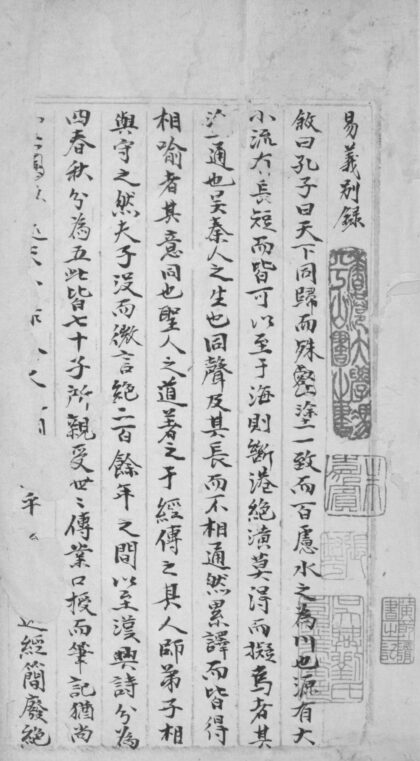 易義別錄
敘曰孔子曰天下同歸而殊壑塗一致而百慮水之為川也源有大
小流有長短而皆可以至于海則斷港絕潢莫得而擬焉者其
通也吳秦人之生也同聲及其長而不相通然累譯而皆得
相喻者其意同也聖人之道著之于經傳之其人師弟子相
與守之然夫子沒而微言絕二百餘年之間以至漢興詩分為
四春秋分為五此皆七十子所親受世〻傳業口授而筆記猶尚
經簡廢絕
香港大學馮平山圖書